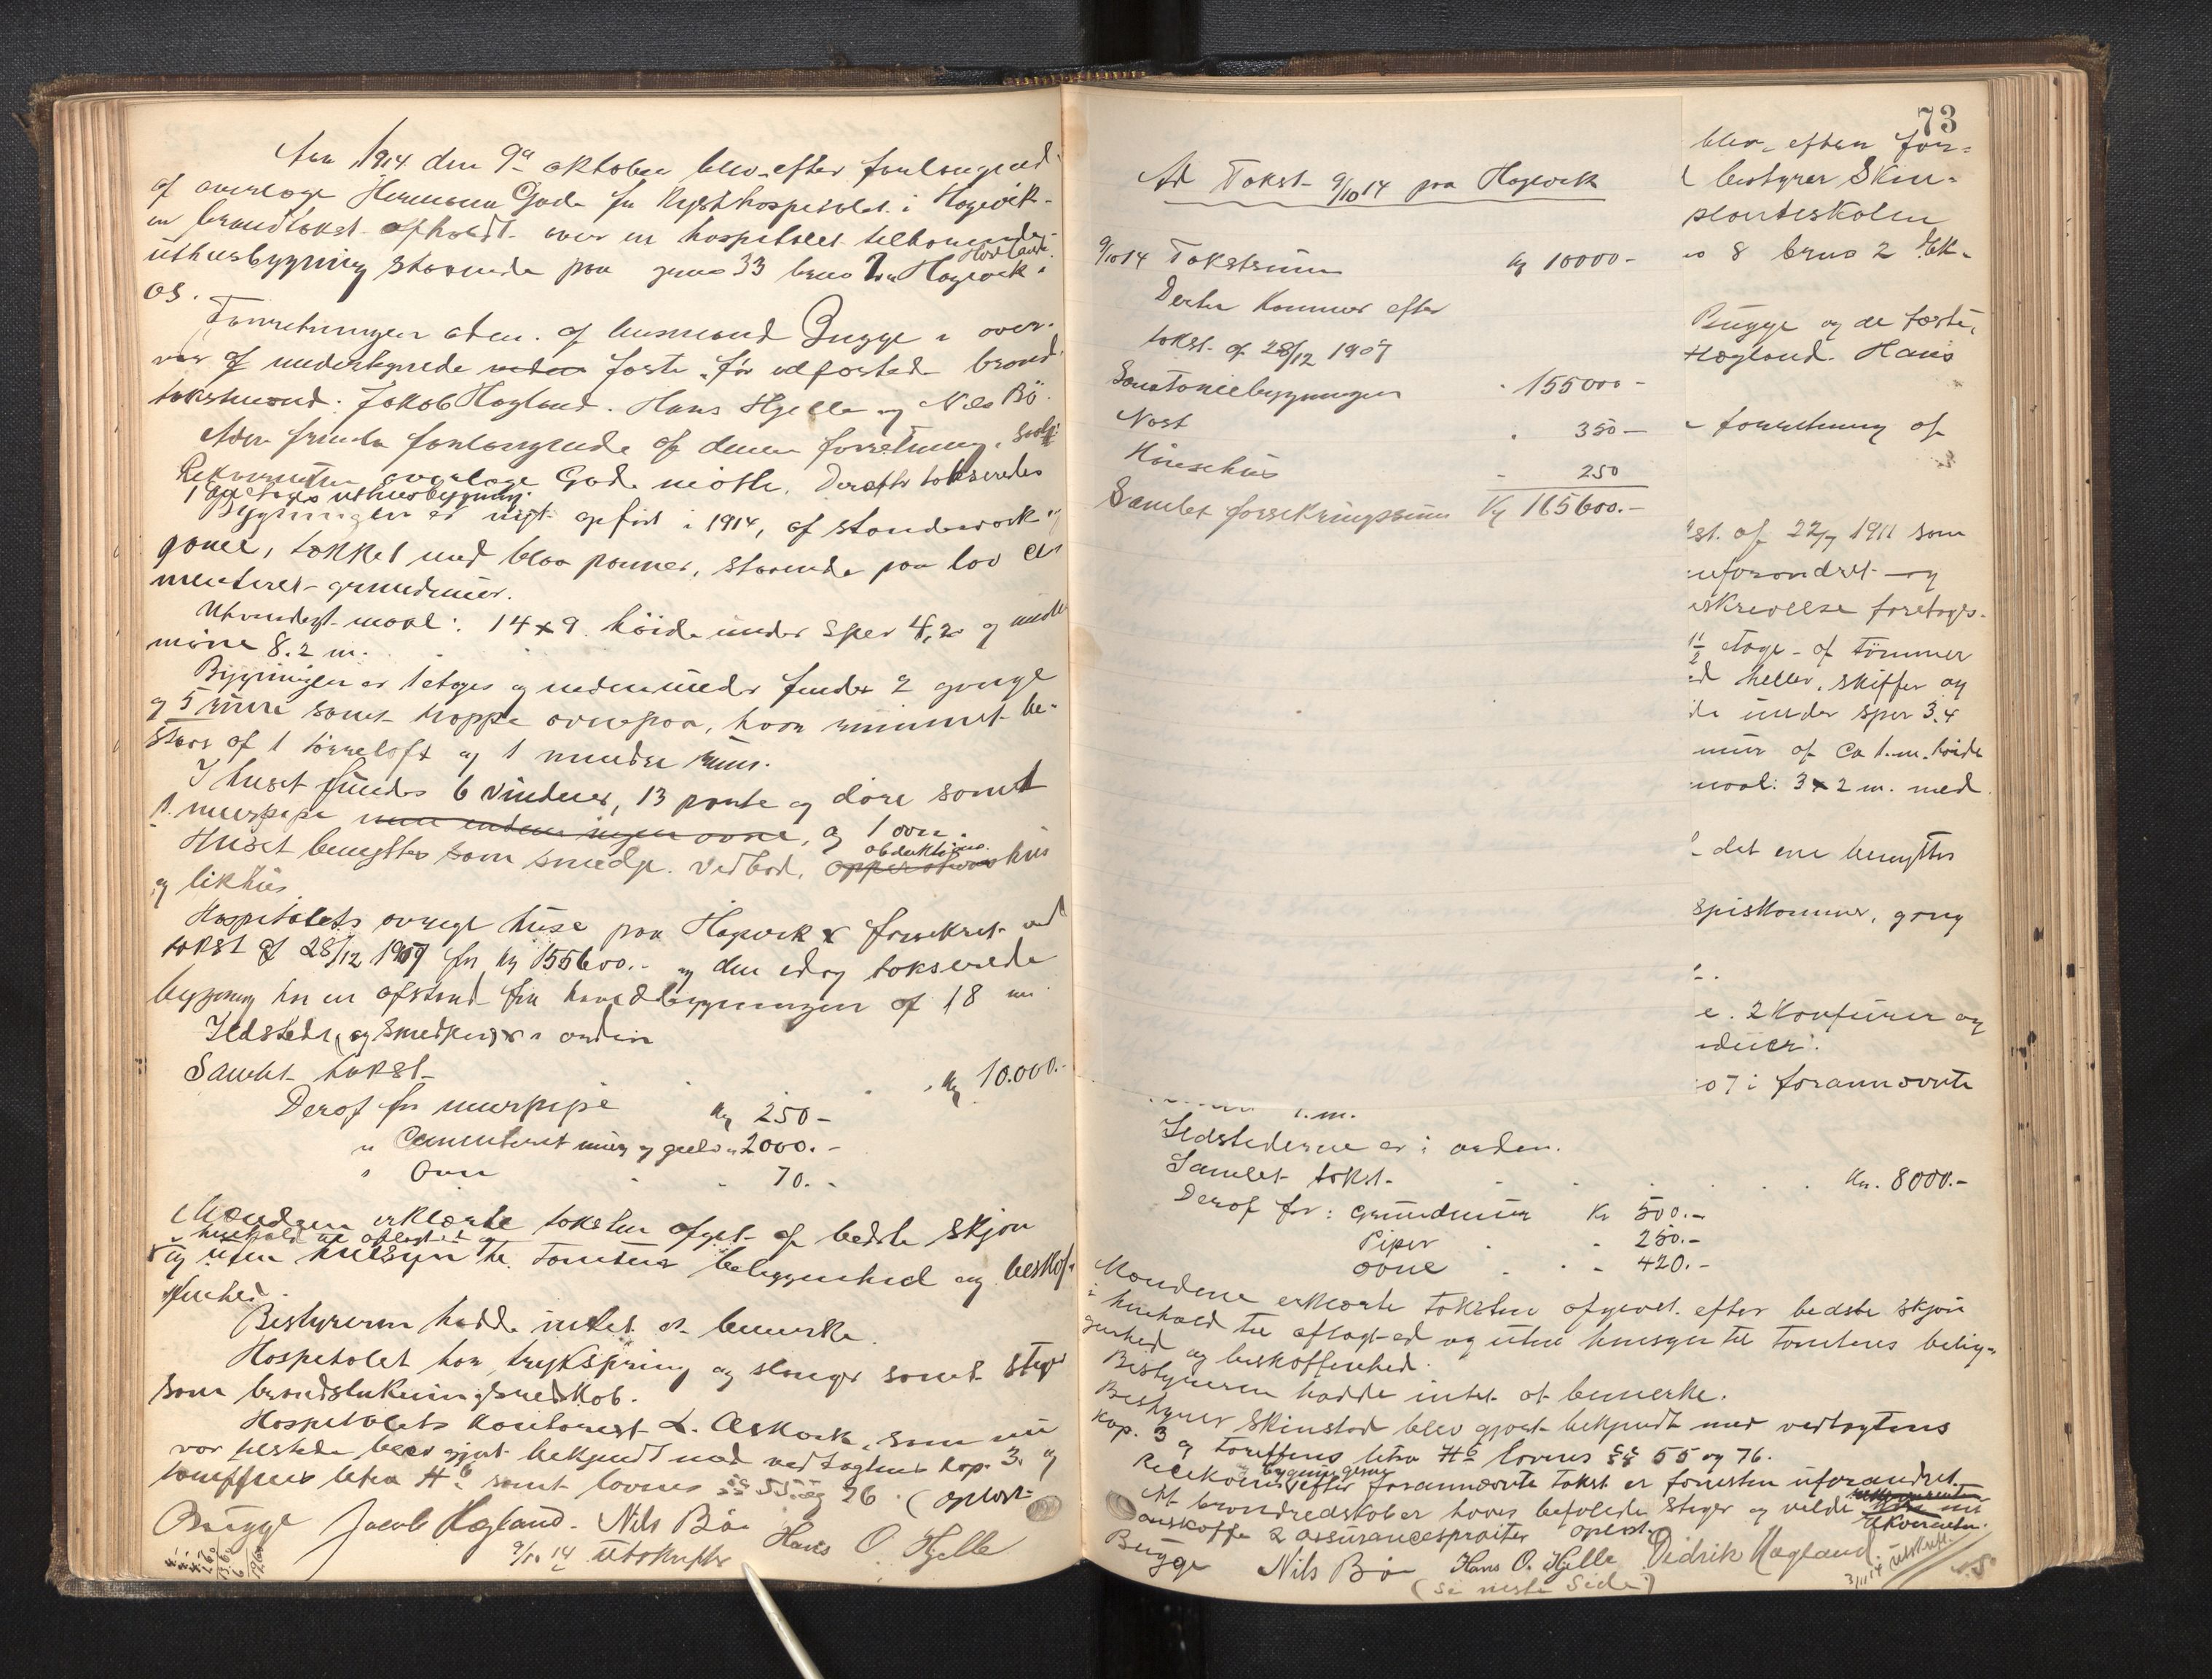 Aar 1914 den 9de oktober blev efter forlangend
af overlæge Hermann Gade for Kysthospitalet i Hagevik
en brandtakst afholdt over en hospitalet tilhørende
uthusbygning staaende paa gnrs 33 brns 1 Hagevik i
Os.
Forretningen adm. af lensmand Bugge i over-
vær af undertegnede faste, før edfæstede brand
takstmænd: Jakob Hagland. Hans Hjelle og Nils Bö.
forlangende af denne forretning
Rekvirenten overlæge Gade mötte. Derefter takseredes
1 etages uthusbygning.
Bygningen er nyt opfört i 1914, af standerverk og
panel, tækket med blaa panner, staaende paa lav ce-
menteret grundmur.
Utvendigt maal: 14 x 9. höide under sper 4,20 og under
möne 8.2 m.
Bygningen er 1 etages og nedenunder findes 2 gange
og 5 rum samt trappe ovenpaa, hvor rummet be-
staar af 1 törreloft og 1 mindre rum.
I huset findes 6 vinduer, 13 porte og döre samt
1 murpipe men endnu ingen ovne, og 1 ovn.
Huset benyttes som smedje. vedbod, obduktions
operations hus
og likhus
Hospitalets övrige huse paa Hagevik er forsikret ved
takst af 28/12 1909 for kr 155600.- og den idag takserede
bygning har en afstand fra hovedbygningen af 18 m.
Ildsteder og smedje er i orden
Samlet takst kr 10.000.-
Deraf for murpipe kr 250 -
" Cementeret mur og gulv " 2000. -
" Ovn 70. -
Mændene erklærte taksten afgit af bedste skjön
i henhold til aflagt ed og
og uten hensyn til tomtens beliggenhed og beskaf-
fenhed.
Bestyreren hadde intet at bemerke.
Hospitalet har trykspring og slanger samt stiger
som brandslukningsredskab.
Hospitalets kontorist L. Askvik, som nu
var tilstede blev gjort bekjendt med vedtægtens kap. 3. og
tariffens litra H6 samt lovens §§ 55 og 76. (oplæst
Bugge Jacob Hægland. Nils Bö Hans O. Hjelle
9/10 14 Utskrift
73
Ad Takst 9/10 14 paa Hagevik
9/10 14 Takstsum kr 10000 -
Dertil kommer efter
takst af 28/12 1909
Sanatoriebygningen " 155000 -
Nöst " 350 -
Hönsehus - 250
Samlet forsikringssum kr 165600.-
blev efter for-
bestyrer Skin-
planteskolen
8 brns 2
Bugge og de faste,
Hægland. Hans
forretning af
st. af 22/7 1911 som
uforandret og
skrivelse foretages.
1/2 etage af tömmer
d heller, skiffer og
de under sper 3.4
mur af ca 1.m. höide
maal: 3 x 2 m. med
det ene benyttes
spiskammer, gang
e. 2 komfurer og
07 i forannævnte
1.m.
Ildstederne er i orden.
Samlet takst. kr. 8000.-
Deraf for: Grundmur kr 500.-
Piper - 250.-
ovne - 420.-
Mændene erklærte taksten afgivet efter bedste skjön
i henhold til aflagt ed og uten hensyn til tomtens belig-
genhed og beskaffenhed.
Bestyreren hadde intet at bemerke.
Bestyrer Skinstad blev gjort bekjendt med vedtægtens
kap. 3 og tariffens litra H6 lovens §§ 55 og 76.
bygningerne
efter forannævnte takst er forresten uforandret.
At brandredskaber haves befalede stiger og vilde
rekvirenten
anskaffe 2 assurancespröiter oplæst.
Bugge Nils Bö Hans O. Hjelle Didrik Hægland.
3/11 14 utskrift.
(se neste side)